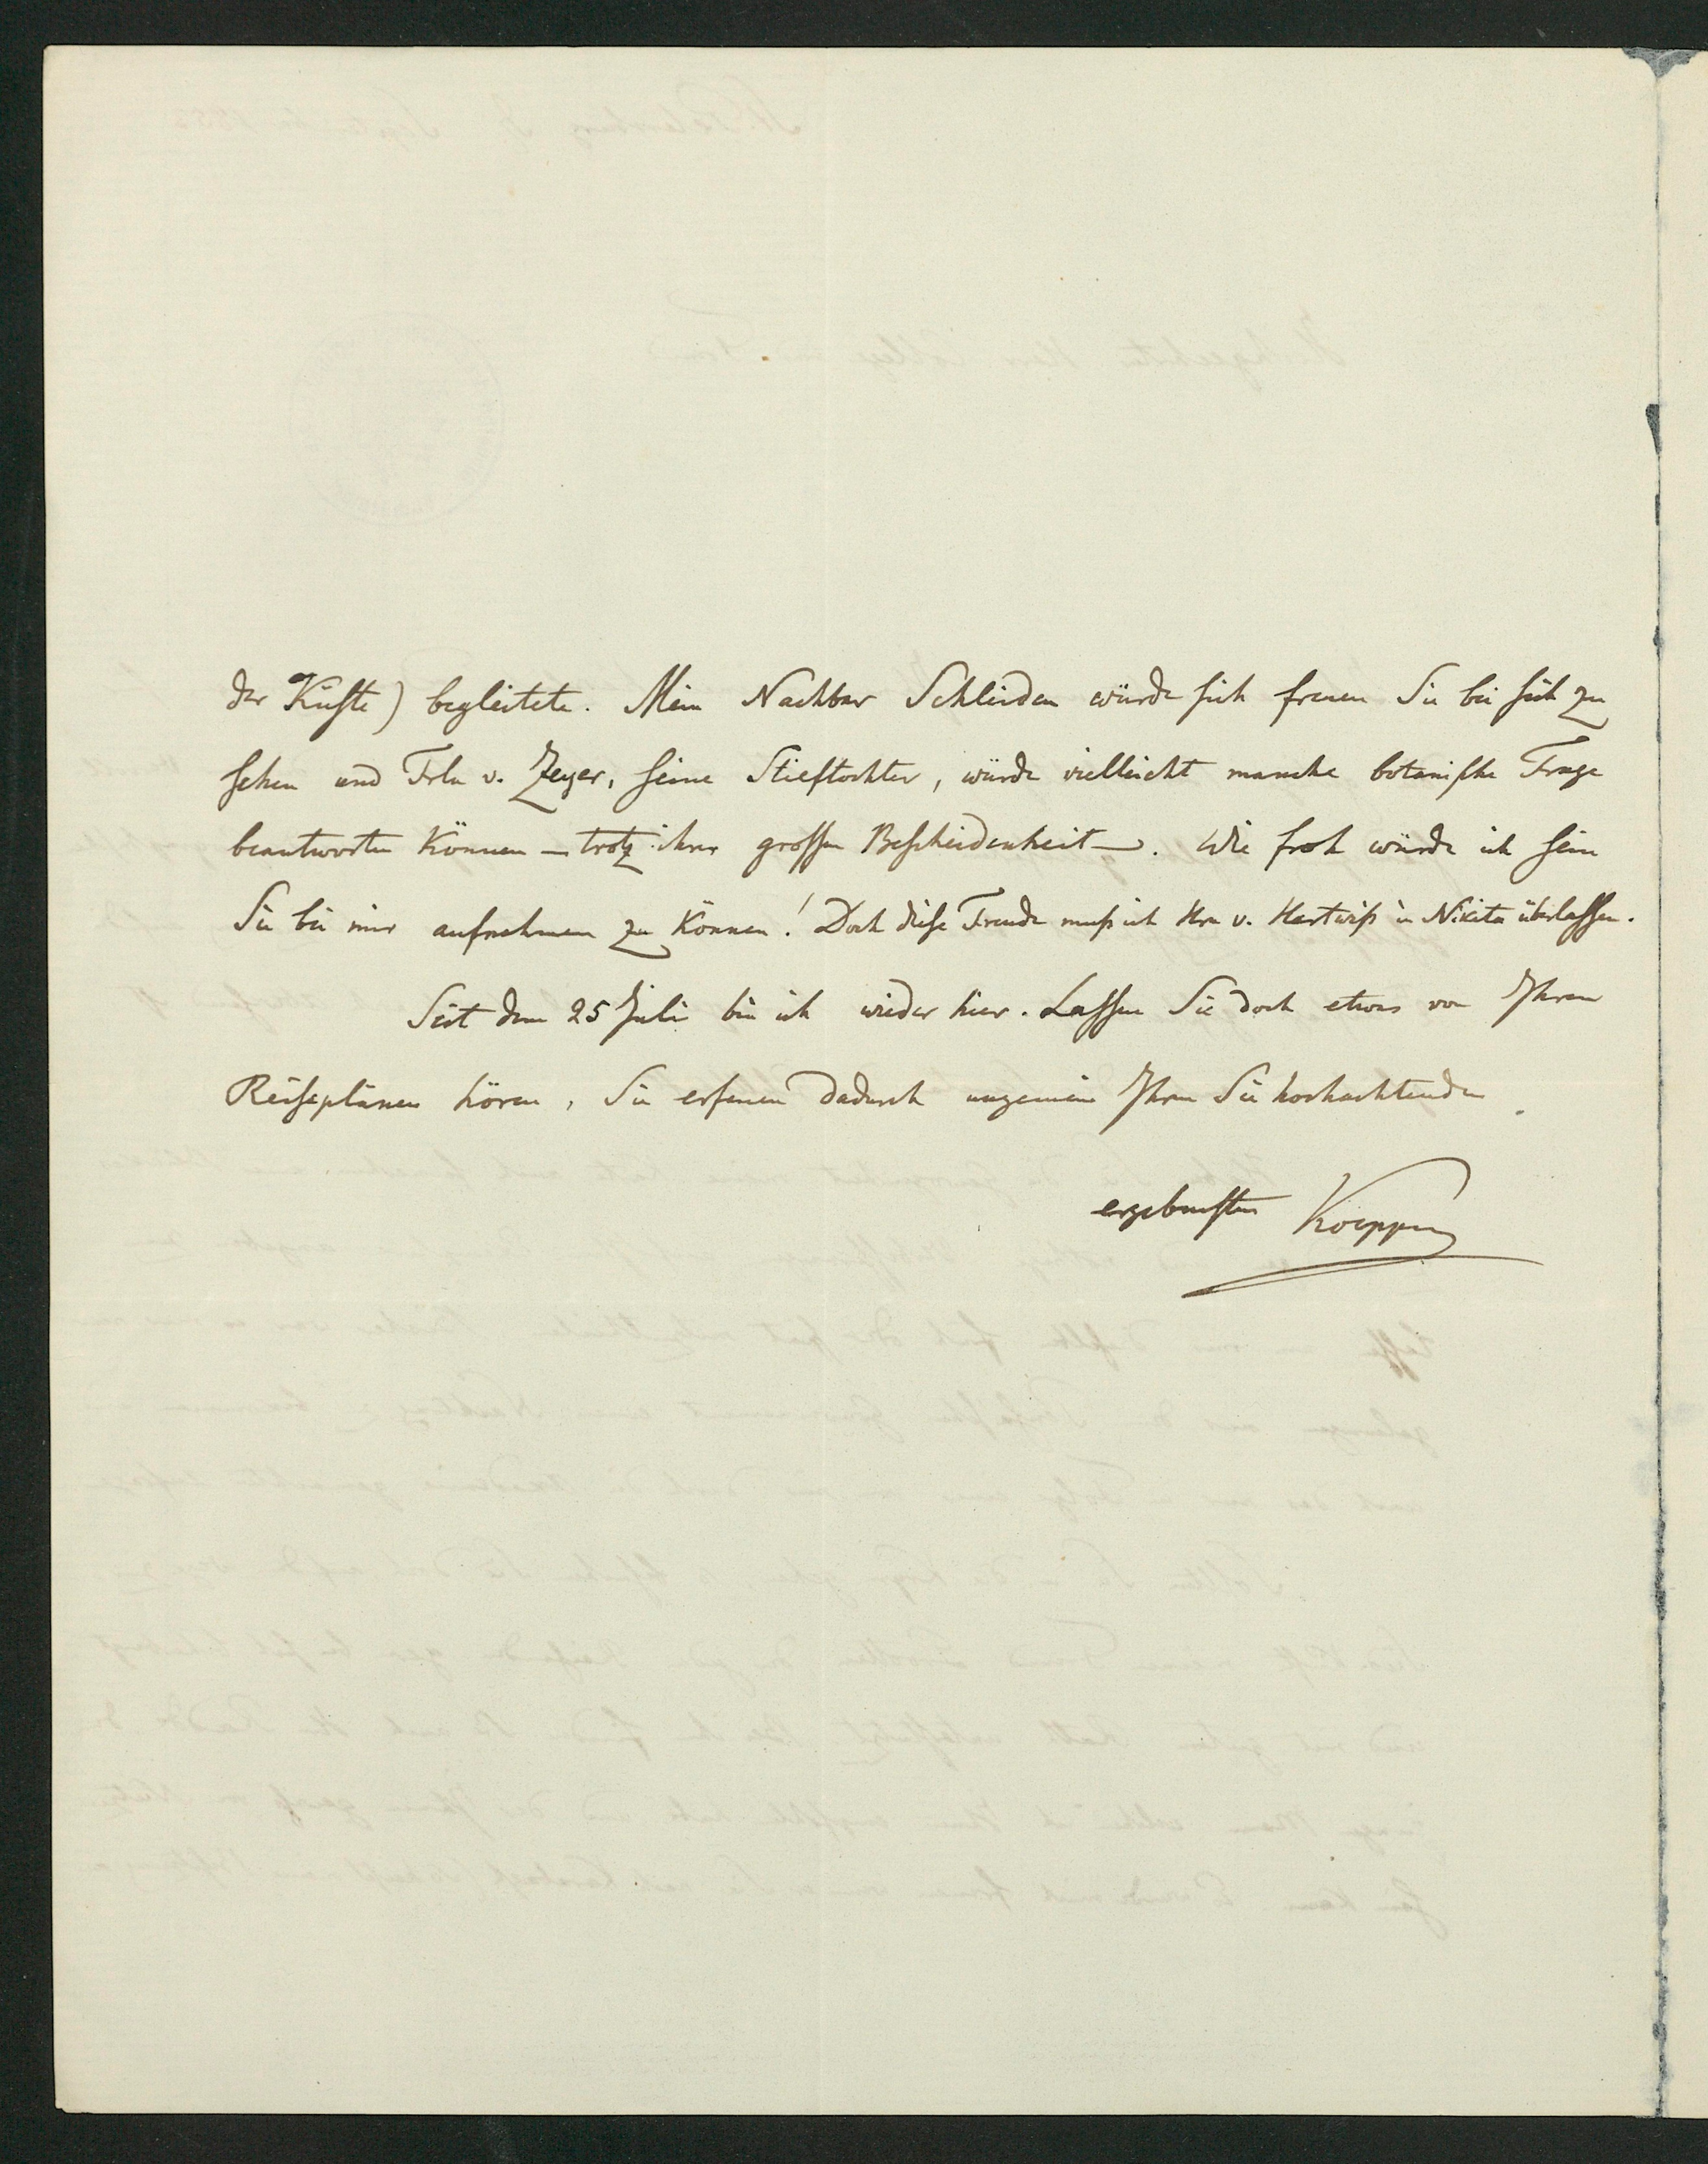 der Küste) begleitete. Mein Nachbar Schleiden würde sich freuen Sie bei sich zu
sehen und Frln v. Zeyer, seine Stieftochter, würde vielleicht manche botanische Frage
beantworten können — trotz ihrer grossen Bescheidenheit —. Wie froh würde ich sein
Sie bei mir aufnehmen zu können! Doch diese Freude muß ich Hrn v. Hartwiß in Nikita überlassen.
Seit dem 25 Juli bin ich wieder hier. Lassen Sie doch etwas von Ihren
Reiseplänen hören, Sie erfreuen dadurch ungemein Ihren Sie hochachtenden
ergebensten Koeppen